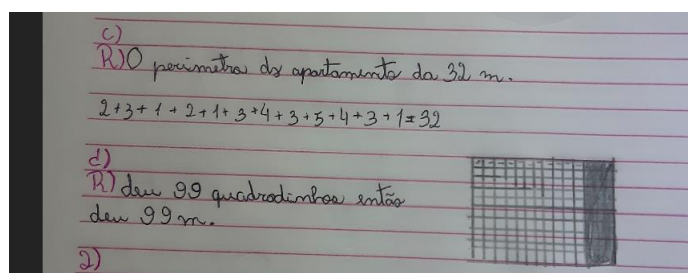 c)
R) O perimetro do apartamento da 32 m.
2+3+1+2+1+3+4+3+5+4+3+1=32
d)
R) deu 99 quadrodinhos então
deu 99 m.
2)